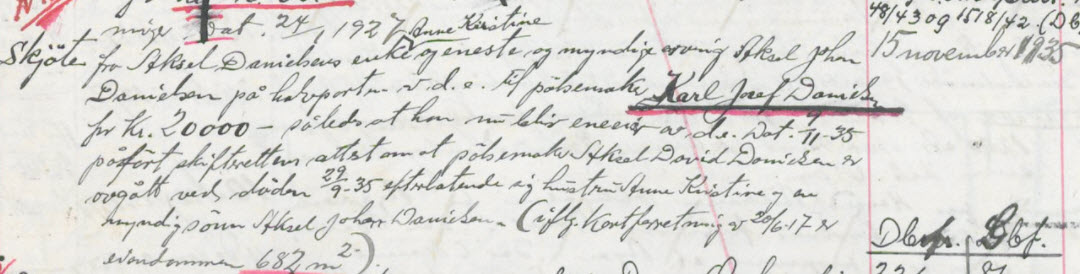 48/43 og 1578/42. (Db
møge Dat. 24/ 1927 Anne Kristine
Skjöte fra Aksel Danielsens enke og eneste og myndige arving Aksel Johan
15 november 1935
Danielsen på halvparten av d.e. til pölsemaker Karl Josef Danielsen
for Kr. 20000 – således at han nu blir eneeier av d.e. Dat. 9/11-35
påfört skifterettens attest om at pölsemaker Aksel David Danielsen er
avgått ved döden 29/9-35 efterlatende sig hustru Anne Kristine og en
myndig sönn Aksel Johan Danielsen. (iflg. Kartforretning av 20/6-17 er
eiendommen 682 m2).
Dbf.